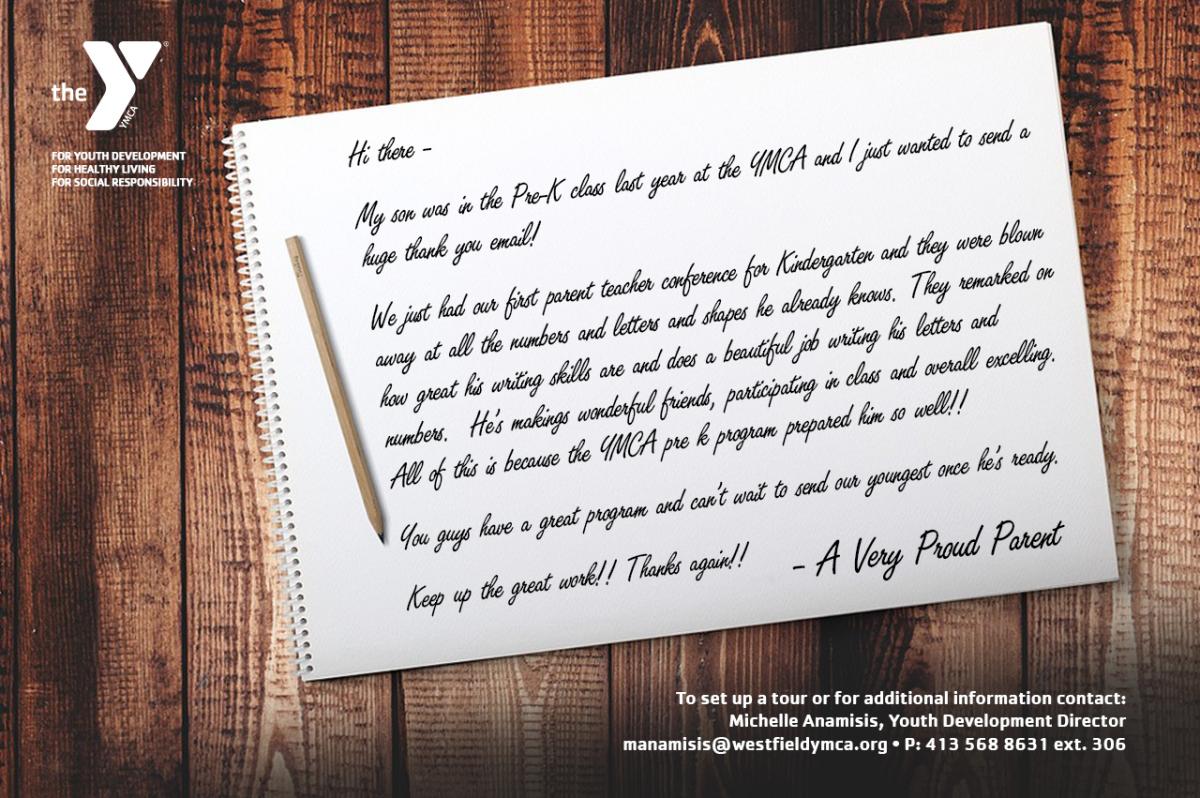 the
YMCA
FOR YOUTH DEVELOPMENT
FOR HEALTHY LIVING
FOR SOCIAL RESPONSIBILITY
Hi there -
My son was in the Pre-K class last year at the YMCA and I just wanted to send a
huge thank you email!
We just had our first parent teacher conference for Kindergarten and they were blown
away at all the numbers and letters and shapes he already knows. They remarked on
how great his writing skills are and does a beautiful job writing his letters and
numbers. He's makings wonderful friends, participating in class and overall excelling.
All of this is because the YMCA pre k program prepared him so well!!
You guys have a great program and can't wait to send our youngest once he's ready.
Keep up the great work!! Thanks again!!
- A Very Proud Parent
To set up a tour or for additional information contact:
Michelle Anamisis, Youth Development Director
manamisis@westfieldymca.org • P: 413 568 8631 ext. 306